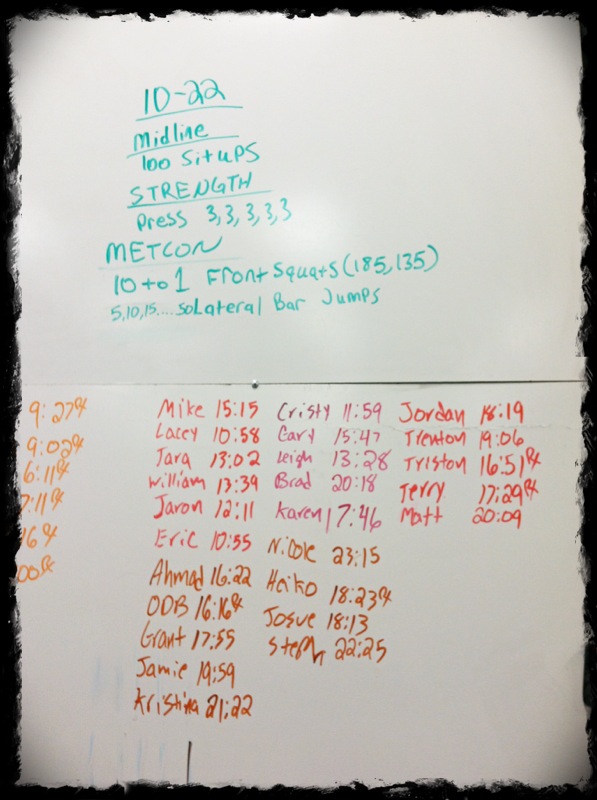 10-22
Midline
100 SitUPS
STRENGTH
Press 3,3,3,3,3
METCON
10 to 1 Front Squats (185,135)
5,10,15....50 Lateral Bar Jumps
9:27℞
9:02℞
6:11℞
7:11℞
16℞
00℞
Mike 15:15
Lacey 10:58
Jara 13:02
William 13:39
Jaron 12:11
Eric 10:55
Ahmad 16:22
ODB 16:16℞
Grant 17:55
Jamie 19:59
Kristina 21:22
Cristy 11:59
Gary 15:47
Leigh 13:28
Brad 20:18
Karen 17:46
Nicole 23:15
Heiko 18:23℞
Josue 18:13
Steph 22:25
Jordan 18:19
Trenton 19:06
Triston 16:51℞
Terry 17:29℞
Matt 20:09